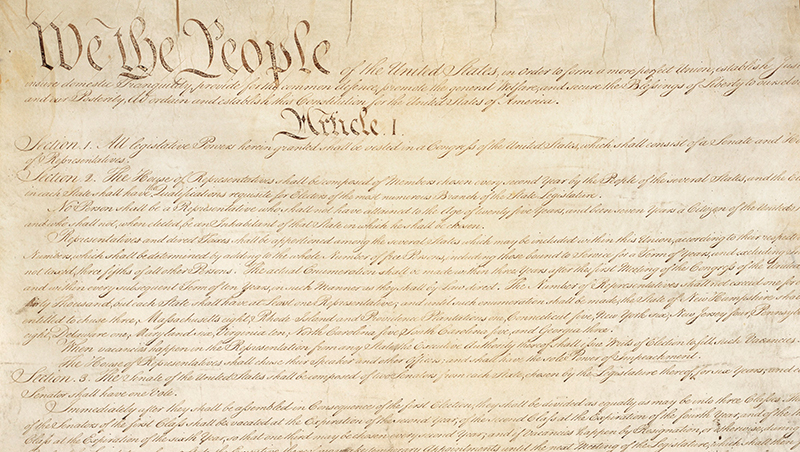 We the People of the United States, in Order to form a more perfect Union, establish Jus
insure domestic Tranquility, provide for the common defence, promote the general Welfare, and secure the Blessings of Liberty to oursel
and our Posterity, do ordain and establish this Constitution for the United States of America.
Article. I.
Section. 1. All legislative Powers herein granted shall be vested in a Congress of the United States, which shall consist of a Senate and Ho
of Representatives.
Section. 2. The House of Representatives shall be composed of Members chosen every second Year by the People of the several States, and the
in each State shall have the Qualifications requisite for Electors of the most numerous Branch of the State Legislature.
No Person shall be a Representative who shall not have attained to the Age of twenty five Years, and been seven Years a Citizen of the United
and who shall not, when elected, be an Inhabitant of that State in which he shall be chosen.
Representatives and direct Taxes shall be apportioned among the several States which may be included within this Union, according to their respect
Numbers, which shall be determined by adding to the whole Number of free Persons, including those bound to Service for a Term of Years, and excluding
not taxed, three fifths of all other Persons. The actual Enumeration shall be made within three Years after the first Meeting of the Congress of the United
and within every subsequent Term of ten Years, in such Manner as they shall by Law direct. The Number of Representatives shall not exceed one for
thirty Thousand, but each State shall have at Least one Representative; and until such enumeration shall be made, the State of New Hampshire shall
entitled to chuse three, Massachusetts eight, Rhode Island and Providence Plantations one, Connecticut five, New York six, New Jersey four, Pennsylv
eight, Delaware one, Maryland six, Virginia ten, North Carolina five, South Carolina five, and Georgia three.
When vacancies happen in the Representation from any State, the Executive Authority thereof shall issue Writs of Election to fill such Vacancies.
The House of Representatives shall chuse their Speaker and other Officers; and shall have the sole Power of Impeachment.
Section. 3. The Senate of the United States shall be composed of two Senators from each State, chosen by the Legislature thereof, for six Years; and
Senator shall have one Vote.
Immediately after they shall be assembled in Consequence of the first Election, they shall be divided as equally as may be into three Classes. Th
of the Senators of the first Class shall be vacated at the Expiration of the second Year, of the second Class at the Expiration of the fourth Year, and of the
Class at the Expiration of the sixth Year, so that one third may be chosen every second Year; and if Vacancies happen by Resignation, or otherwise, during
Appointments until the next Meeting of the Legislature, which shall then